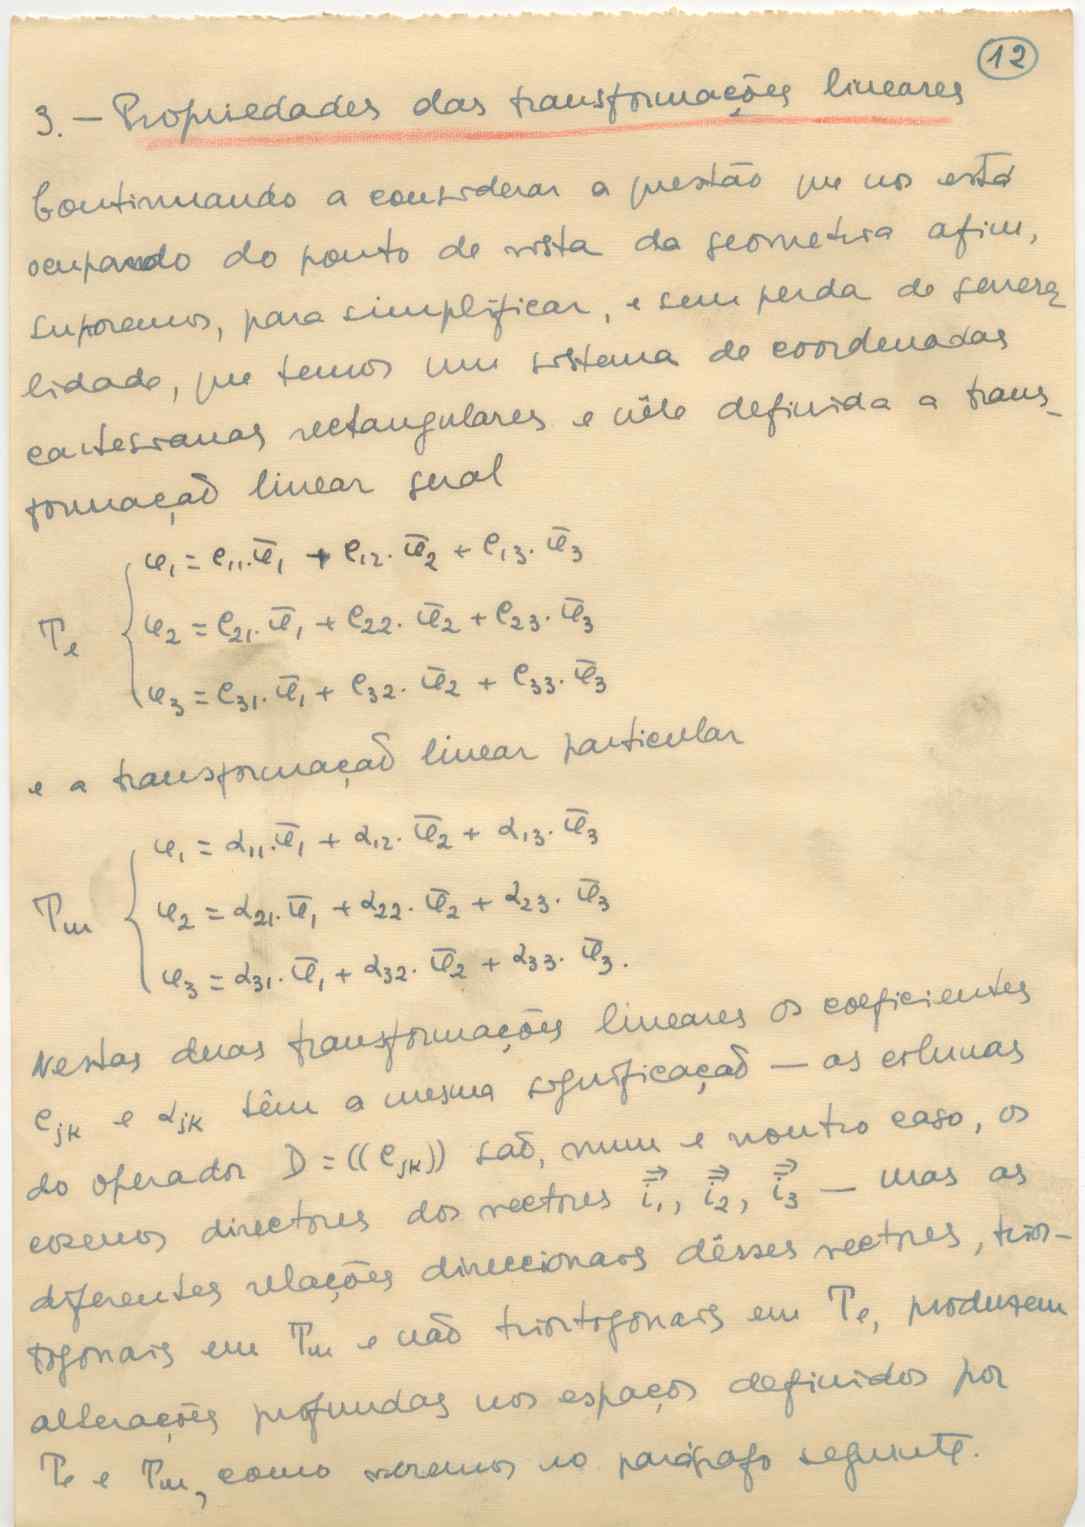 12
3. — Propriedades das transformações lineares
Continuando a considerar a questão que nos está
ocupando do ponto de vista da geometria afim,
suporemos, para simplificar, e sem perda de genera
lidade, que temos um sistema de coordenadas
cartesianas rectangulares e nêle definida a trans-
formação linear geral
φ₁ = e₁₁.φ̄₁ + e₁₂.φ̄₂ + e₁₃.φ̄₃
Tₑ { φ₂ = e₂₁.φ̄₁ + e₂₂.φ̄₂ + e₂₃.φ̄₃
φ₃ = e₃₁.φ̄₁ + e₃₂.φ̄₂ + e₃₃.φ̄₃
e a transformação linear particular
φ₁ = α₁₁.φ̄₁ + α₁₂.φ̄₂ + α₁₃.φ̄₃
Tₘ { φ₂ = α₂₁.φ̄₁ + α₂₂.φ̄₂ + α₂₃.φ̄₃
φ₃ = α₃₁.φ̄₁ + α₃₂.φ̄₂ + α₃₃.φ̄₃.
Nestas duas transformações lineares os coeficientes
e_jk e α_jk têm a mesma significação — as colunas
do operador D = ((e_jk)) são, num e noutro caso, os
cosenos directores dos vectores i⃗₁, i⃗₂, i⃗₃ — mas as
diferentes relações direccionais dêsses vectores, trior-
togonais em Tₘ e não triortogonais em Tₑ, produzem
alterações profundas nos espaços definidos por
Tₑ e Tₘ, como veremos no parágrafo seguinte.